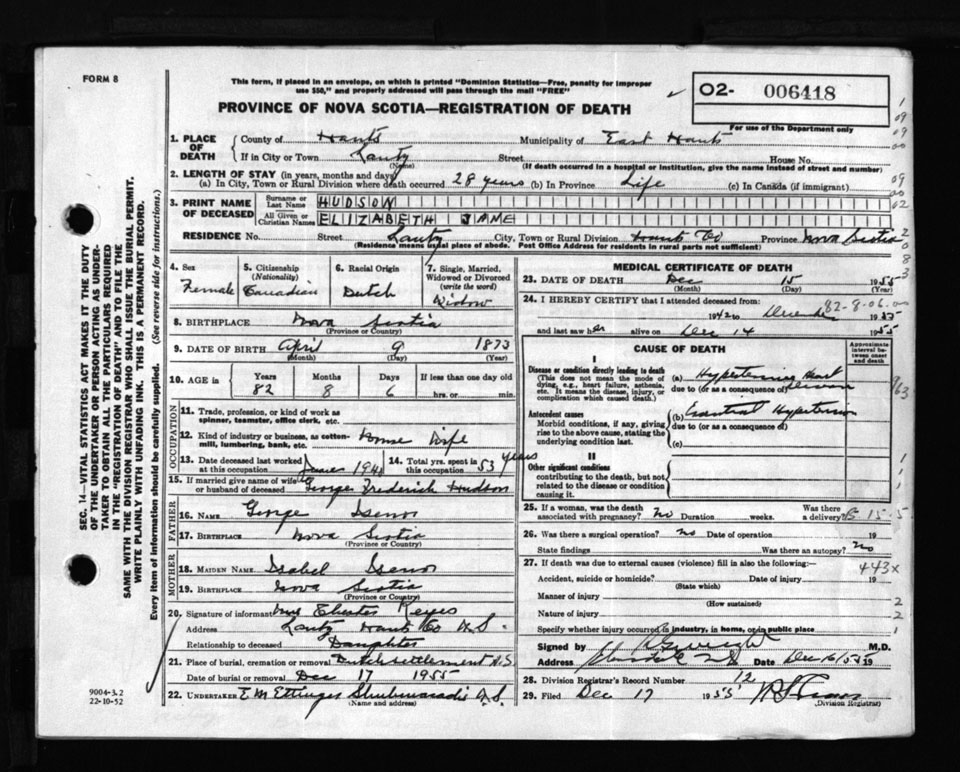 FORM 8
This form, if placed in an envelope, on which is printed "Dominion Statistics—Free, penalty for improper
use $50," and properly addressed will pass through the mail "FREE"
PROVINCE OF NOVA SCOTIA—REGISTRATION OF DEATH
O2- 006418
For use of the Department only
SEC. 14—VITAL STATISTICS ACT MAKES IT THE DUTY
OF THE UNDERTAKER OR PERSON ACTING AS UNDER-
TAKER TO OBTAIN ALL THE PARTICULARS REQUIRED
IN THE "REGISTRATION OF DEATH" AND TO FILE THE
SAME WITH THE DIVISION REGISTRAR WHO SHALL ISSUE THE BURIAL PERMIT.
WRITE PLAINLY WITH UNFADING INK. THIS IS A PERMANENT RECORD.
Every item of information should be carefully supplied. (See reverse side for instructions.)
1. PLACE OF DEATH County of Hants Municipality of East Hants
If in City or Town Lantz Street House No.
(Name) (If death occurred in a hospital or institution, give the name instead of street and number)
2. LENGTH OF STAY (in years, months and days)
(a) In City, Town or Rural Division where death occurred 28 years (b) In Province Life (c) In Canada (if immigrant)
3. PRINT NAME OF DECEASED Surname or Last Name HUDSON
All Given or Christian Names ELIZABETH JANE
RESIDENCE No. Street Lantz City, Town or Rural Division Hants Co Province Nova Scotia
(Residence means usual place of abode. Post Office Address for residents in rural parts not sufficient)
4. Sex Female
5. Citizenship (Nationality) Canadian
6. Racial Origin Dutch
7. Single, Married, Widowed or Divorced (write the word) Widow
8. BIRTHPLACE Nova Scotia
(Province or Country)
9. DATE OF BIRTH April 9 1873
(Month) (Day) (Year)
10. AGE in Years 82 Months 8 Days 6 If less than one day old hrs. or min.
OCCUPATION
11. Trade, profession, or kind of work as
spinner, teamster, office clerk, etc.
12. Kind of industry or business, as cotton-
mill, lumbering, bank, etc. House Wife
13. Date deceased last worked at this occupation 14. Total yrs. spent in this occupation 53 years
15. If married give name of wife
or husband of deceased George Frederick Hudson
FATHER
16. NAME George Isenor
17. BIRTHPLACE Nova Scotia
(Province or Country)
MOTHER
18. MAIDEN NAME Isabel Isenor
19. BIRTHPLACE Nova Scotia
(Province or Country)
20. Signature of informant Mrs Keyes
Address Lantz Hants Co N.S.
Relationship to deceased Daughter
21. Place of burial, cremation or removal Dutch settlement N.S.
Date of burial or removal Dec 17 1955
22. UNDERTAKER E M Ettinger Shubenacadie N.S.
(Name and address)
9004-3.2
22-10-52
MEDICAL CERTIFICATE OF DEATH
23. DATE OF DEATH Dec 15 1955
(Month) (Day) (Year)
24. I HEREBY CERTIFY that I attended deceased from:
82-8-06.
1942 to December 1955
and last saw her alive on Dec 14 1955
CAUSE OF DEATH
Approximate interval between onset and death
I
Disease or condition directly leading to death
(This does not mean the mode of
dying, e.g., heart failure, asthenia,
etc. It means the disease, injury, or
complication which caused death.)
(a) Hypertensive Heart
due to (or as a consequence of)
Antecedent causes
Morbid conditions, if any, giving
rise to the above cause, stating the
underlying condition last.
(b) Hypertension
due to (or as a consequence of)
(c)
II
Other significant conditions
contributing to the death, but not
related to the disease or condition
causing it.
25. If a woman, was the death
associated with pregnancy? No Duration weeks. Was there a delivery?
26. Was there a surgical operation? No Date of operation 19
State findings Was there an autopsy? No
27. If death was due to external causes (violence) fill in also the following:—
443X
Accident, suicide or homicide? Date of injury 19
(State which)
Manner of injury
(How sustained)
Nature of injury
Specify whether injury occurred in industry, in home, or in public place
Signed by M.D.
Address Date Dec 16/55 19
28. Division Registrar's Record Number 12
29. Filed Dec 17 1955
(Division Registrar)